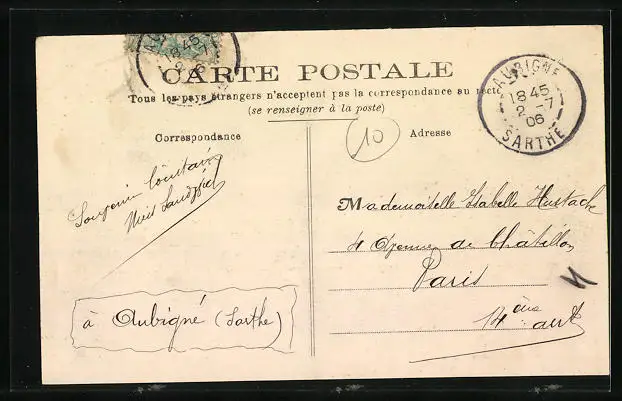 CARTE POSTALE
Tous les pays étrangers n'acceptent pas la correspondance au recto
(se renseigner à la poste)
Correspondance
Adresse
10
AUBIGNÉ
18 45
2 - 7
06
SARTHE
18 45
Souvenir lointain
Mademoiselle Isabelle Hustache
4 Avenue de Châtillon
Paris
14 ème arrt
à Aubigné (Sarthe)